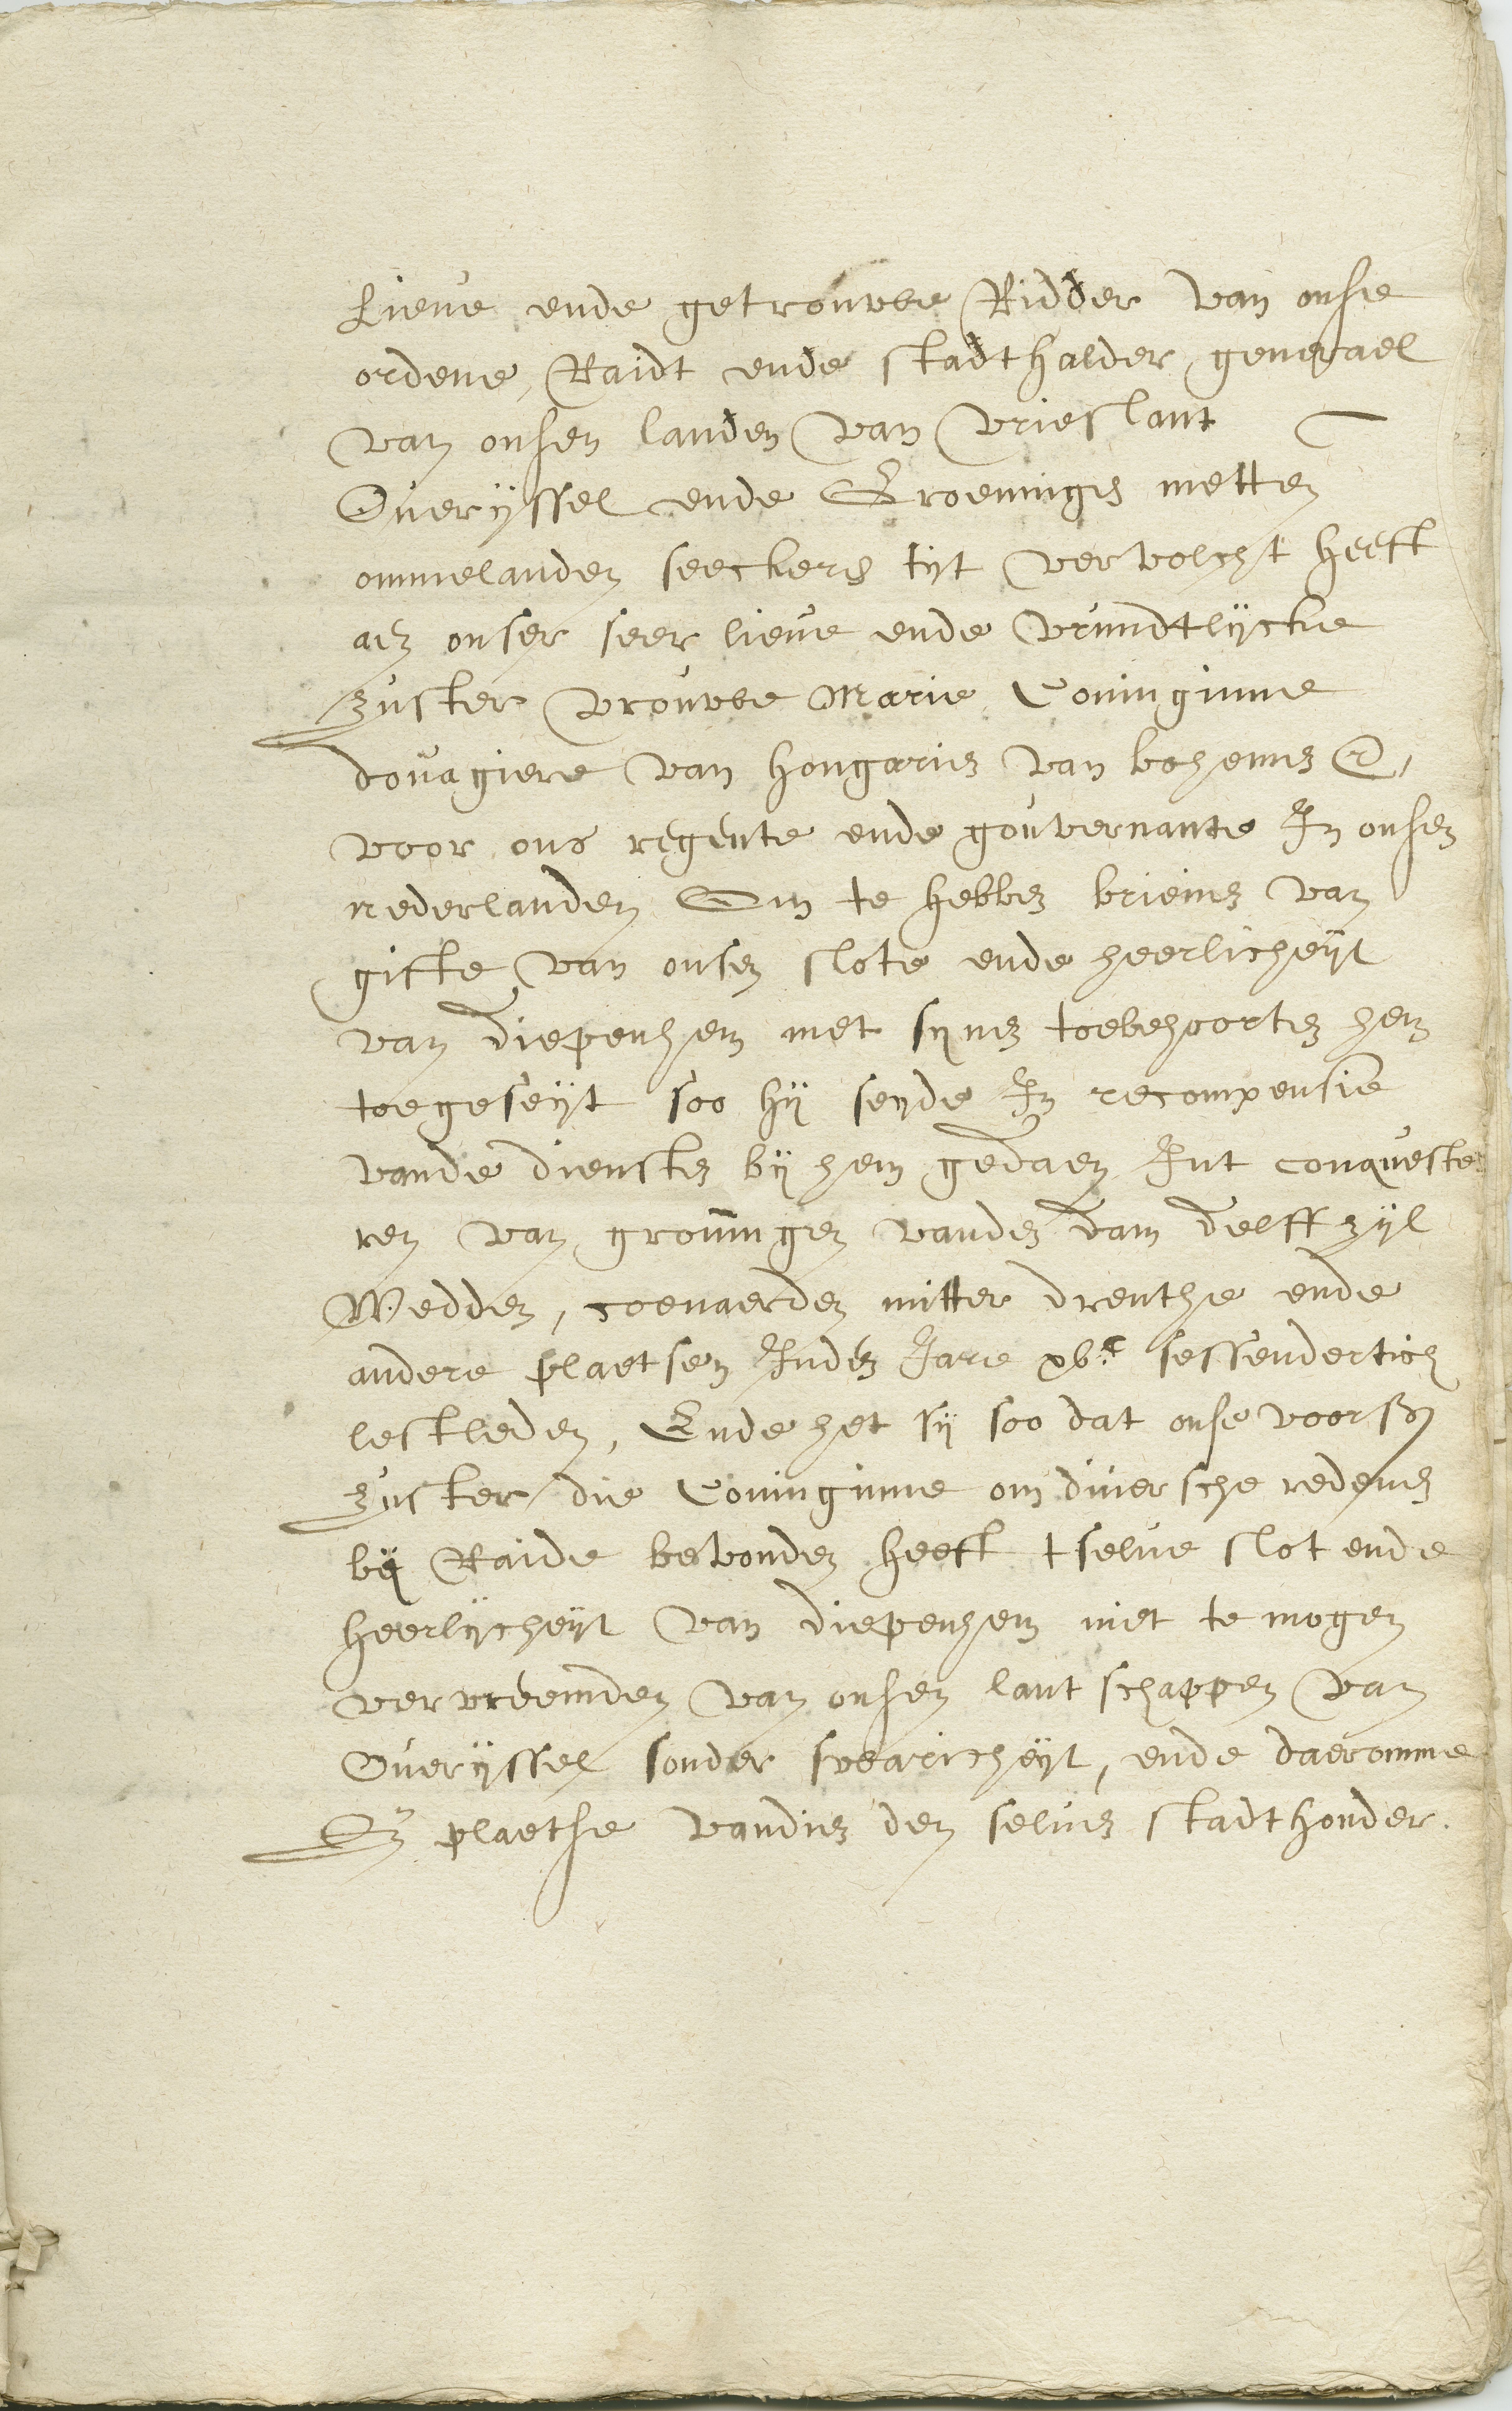 Lieve ende getrouwe Ridder van onse
ordene, Raidt ende stadthalder generael
van onsen landen van Vrieslant
Overijssel ende Groeninges metten
ommelanden seeckers tijt vervolcht heeft
aen onser seer lieve ende vrundtlijcke
Zuster vrouwe Marie Coninginne
douagiere van hongarien van bohemen &,
voor ons regente ende gouvernante In onsen
nederlanden Om te hebben brieven van
gifte van onsen slote ende heerlicheijt
van diepenhem met synen toebehoorten hem
toegeseijt soo hij seyde In recompensie
vande diensten bij hem gedaen Int conqueste
ren van groningen vanden dam delffzijl
Wedden, coevaerden mitter drenthe ende
andere plaetsen Inden Jare xvc sessendertich
lestleden, Ende het sij soo dat onse voors
Zuster die Coninginne om diversche redenen
bij Raide bevonden heeft tselve slot ende
heerlijcheijt van diepenhem niet te mogen
vervreemden van onsen lantschappen van
Overijssel sonder swaricheijt, ende daeromme
In plaetse vandien den selven stadthouder.